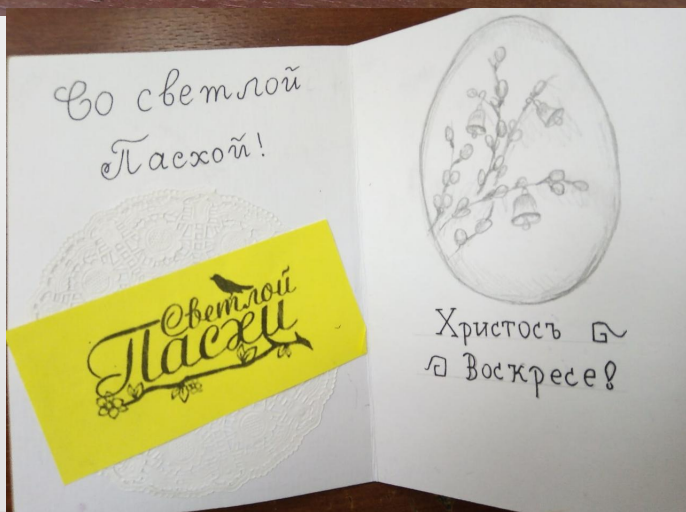 Со светлой
Пасхой!
Светлой
Пасхи
Христосъ
Воскресе!